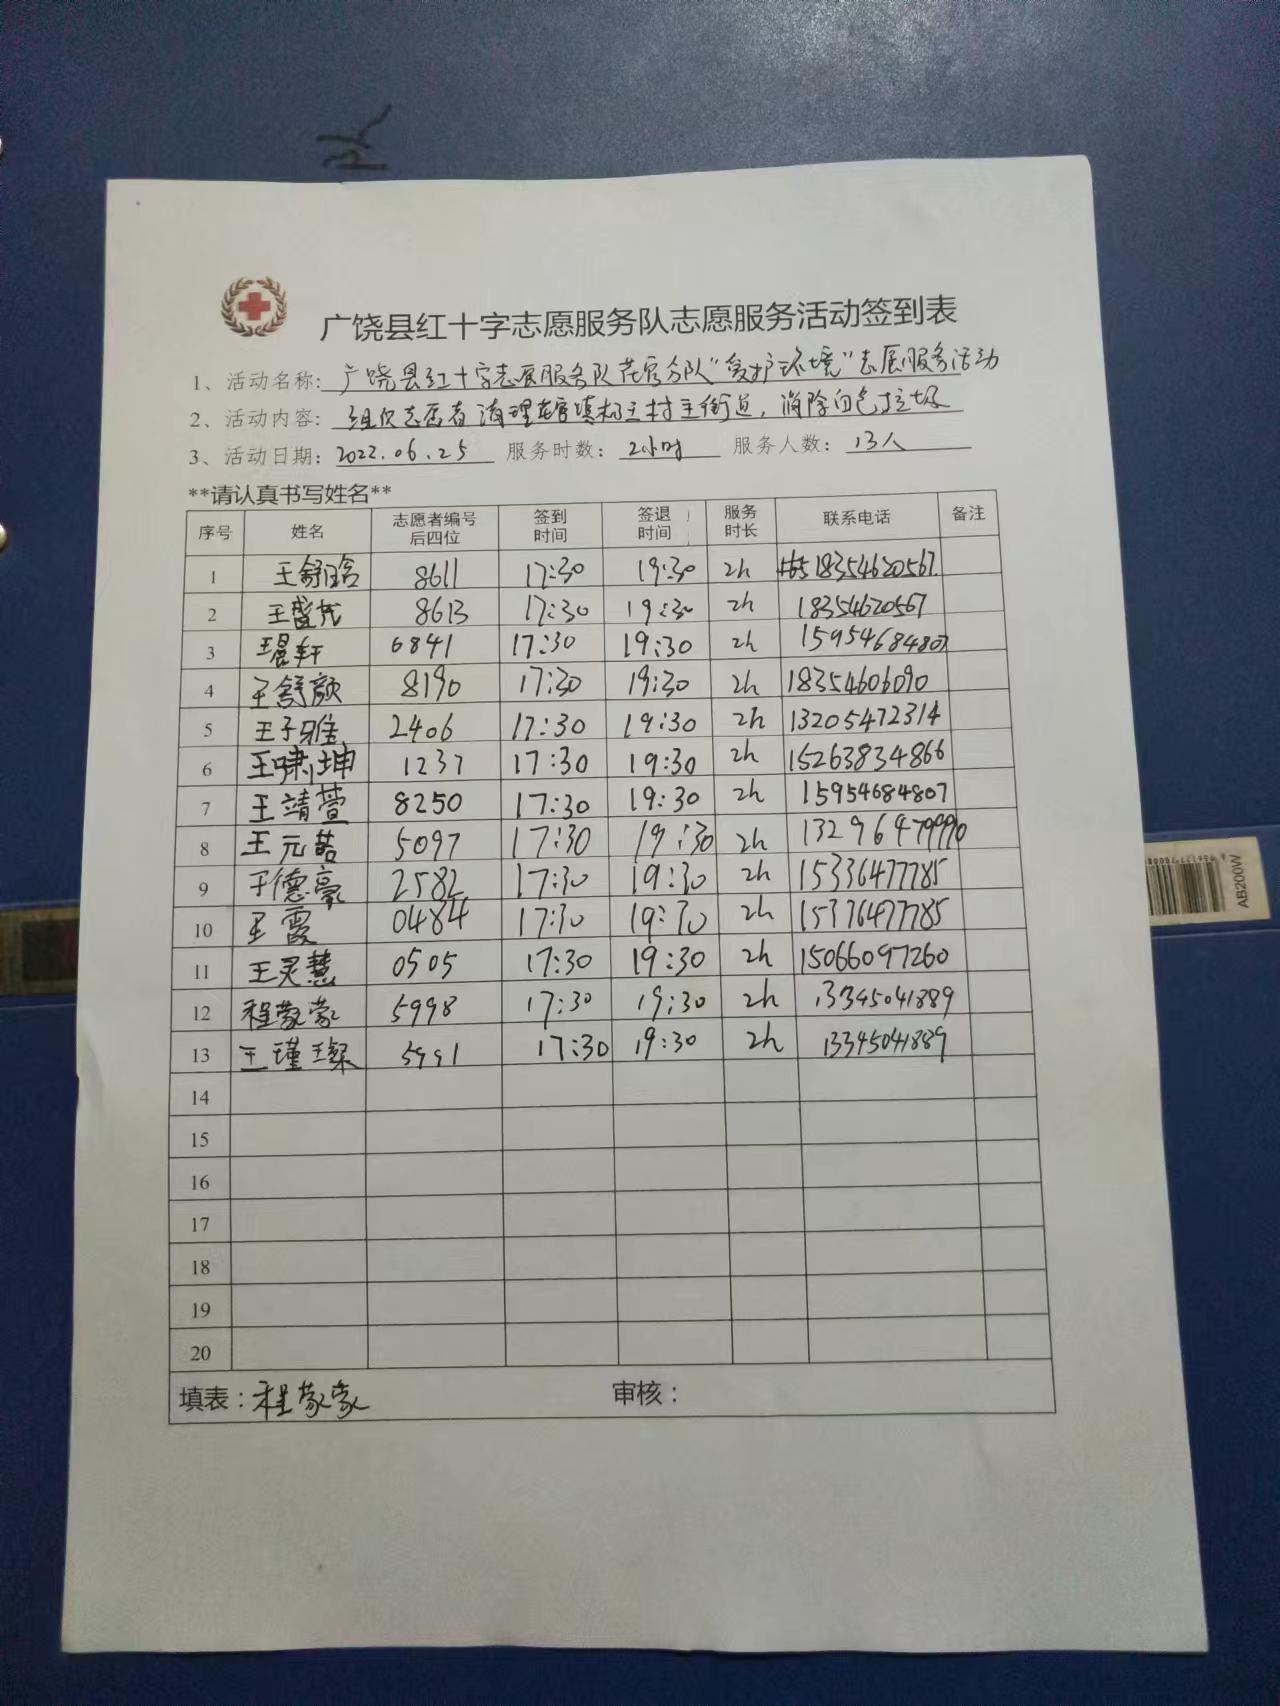 广饶县红十字志愿服务队志愿服务活动签到表
1、活动名称: 广饶县红十字志愿服务队花官分队"爱护环境"志愿服务活动
2、活动内容: 组织志愿者清理花官镇杨王村主街道，消除白色垃圾
3、活动日期: 2022.06.25 服务时数: 2小时 服务人数: 13人
**请认真书写姓名**
序号 姓名 志愿者编号后四位 签到时间 签退时间 服务时长 联系电话 备注
1 王舒晗 8611 17:30 19:30 2h 18354620567
2 王盛茂 8613 17:30 19:30 2h 18354620567
3 6841 17:30 19:30 2h 15954684807
4 王舒颜 8190 17:30 19:30 2h 18354606090
5 王子雅 2406 17:30 19:30 2h 13205472314
6 王啸坤 1237 17:30 19:30 2h 15263834866
7 王靖萱 8250 17:30 19:30 2h 15954684807
8 王元喆 5097 17:30 19:30 2h
9 于德豪 2582 17:30 19:30 2h 15336477785
10 王霞 0484 17:30 19:30 2h 15376477785
11 王灵慧 0505 17:30 19:30 2h 15066097260
12 程蒙蒙 5998 17:30 19:30 2h 13345041889
13 王瑾璨 5991 17:30 19:30 2h 13345041889
14
15
16
17
18
19
20
填表: 程蒙蒙 审核:
AB200W